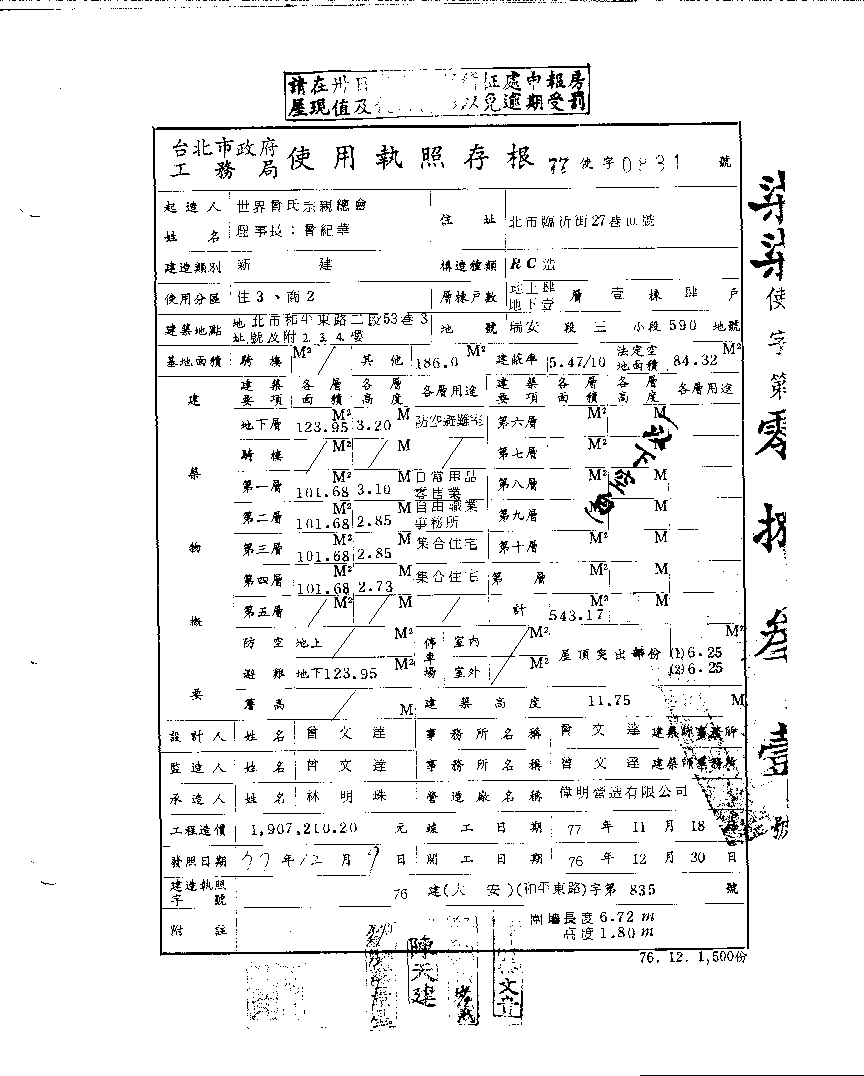 請在 處申報房
屋現值及 以免逾期受罰
台北市政府
工務局 使用執照存根 77 使字 0831 號
起造人姓名 世界曾氏宗親總會
理事長：曾紀華
住址 北市臨沂街27巷10號
建造類別 新建 構造種類 RC造
使用分區 住3、商2 層棟戶數 地上肆 地下壹 層 壹 棟 肆 戶
建築地點 地址 北市和平東路二段53巷3
號及附2.3.4.號 地號 瑞安 段 三 小段 590 地號
基地面積 騎樓 M² 其他 186.0 M² 建蔽率 5.47/10 法定空地面積 84.32 M²
建築物概要
建築要項 各層面積 各層高度 各層用途 建築要項 各層面積 各層高度 各層用途
地下層 123.95 M² 3.20 M 防空避難室 第六層 M² M
騎樓 M² M 第七層 M² M
第一層 101.68 M² 3.10 M 日常用品零售業 第八層 M² M
第二層 101.68 M² 2.85 M 自由職業事務所 第九層 M² M
第三層 101.68 M² 2.85 M 集合住宅 第十層 M² M
第四層 101.68 M² 2.73 M 集合住宅 第 層 M² M
第五層 M² M 計 543.17 M² M
(地下空白)
防空避難 地上 M² 地下 123.95 M²
停車場 室內 M² 室外 M²
屋頂突出部份 (1)6.25 (2)6.25 M²
簷高 M 建築高度 11.75 M
設計人 姓名 曾文達 事務所名稱 曾文達 建築師事務所
監造人 姓名 曾文達 事務所名稱 曾文達 建築師事務所
承造人 姓名 林明珠 營造廠名稱 偉明營造有限公司
工程造價 1,907,210.20 元 竣工日期 77 年 11 月 18 日
發照日期 77 年 12 月 9 日 開工日期 76 年 12 月 30 日
建造執照字號 76 建(大安)(和平東路)字第 835 號
附註 圍牆長度 6.72 m
高度 1.80 m
76.12.1,500份
陳天建
柒柒使字第零捌叁壹號